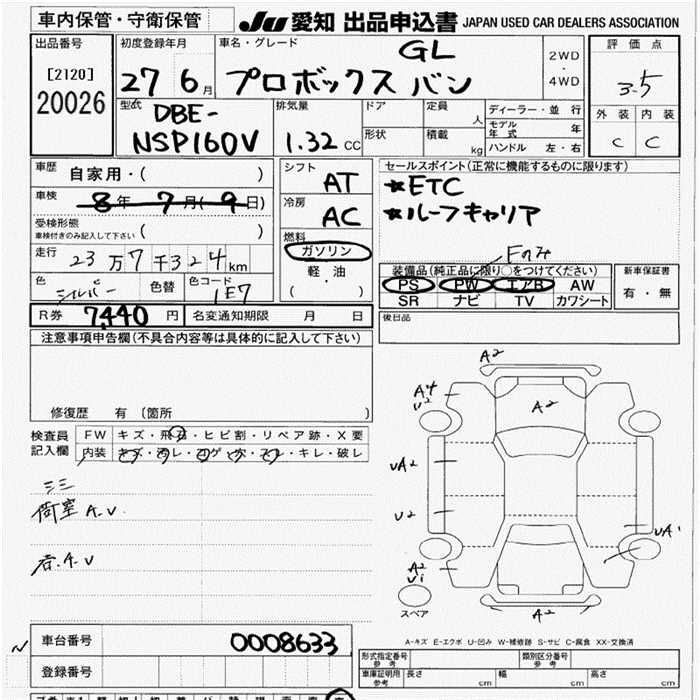 車内保管・守衛保管 JU 愛知 出品申込書 JAPAN USED CAR DEALERS ASSOCIATION
出品番号 初度登録年月 車名・グレード GL 2WD・4WD 評価点
[2120] 27年 6月 プロボックス バン 3.5
20026 型式 DBE-NSP160V 排気量 1.32 CC ドア 定員 人 ディーラー・並行 外装 内装
形状 積載 kg モデル年式 年 C C
ハンドル 左・右
車歴 自家用・( ) シフト AT セールスポイント(正常に機能するものに限ります)
車検 8年 7月( 9日) 冷房 AC ★ETC
受検形態 ★ルーフキャリア
車検付きのみ記入して下さい ( ) 燃料
走行 23万7千324km ガソリン Fのみ
軽・油 装備品(純正品に限り○をつけてください) 新車保証書
色 シルバー 色替 色コード 1E7 ( ・ ) PS PW エアB AW 有・無
SR ナビ TV カワシート
R券 7,440 円 名変通知期限 月 日 後日品
注意事項申告欄(不具合内容等は具体的に記入して下さい)
修復歴 有〔箇所 〕
検査員 FW キズ・飛石・ヒビ割・リペア跡・X要
記入欄 内装 キズ・汚レ・コゲ・穴・スレ・キレ・破レ
荷室 A.V
A2
A4
U2
A2
UA2
U2
UA1
A2
U1
スペア
A2
A-キズ E-エクボ U-凹み W-補修跡 S-サビ C-腐食 XX-交換済
車台番号 0008633
登録番号
形式指定番号 参考 類別区分番号 参考
車庫証明用 参考 長さ cm 幅 cm 高さ cm